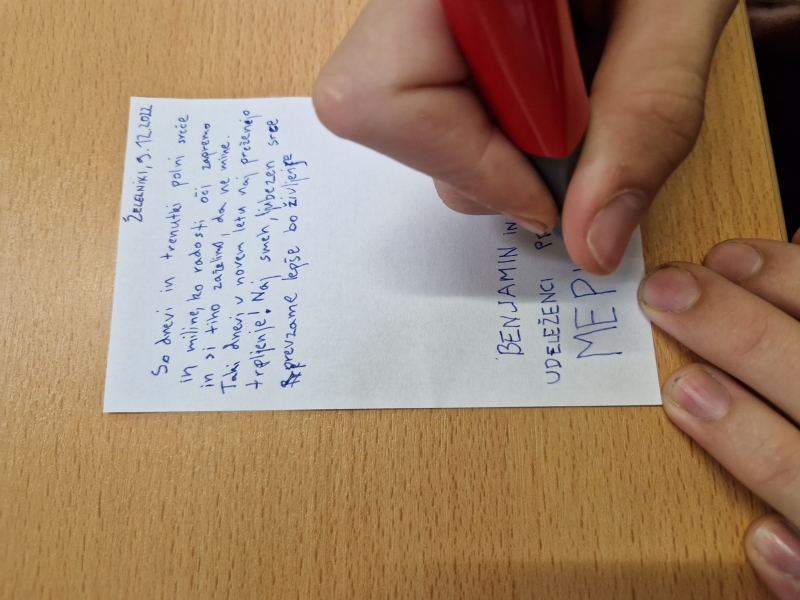 ŽELEZNIKI, 9.12.2022
So dnevi in trenutki polni sreče
in miline, ko radosti oči zapremo
in si tiho zaželimo, da ne mine.
Taki dnevi v novem letu naj preženejo
trpljenje! Naj smeh, ljubezen srce
prevzame lepše bo življenje
BENJAMIN in
UDELEŽENCI
MEPI